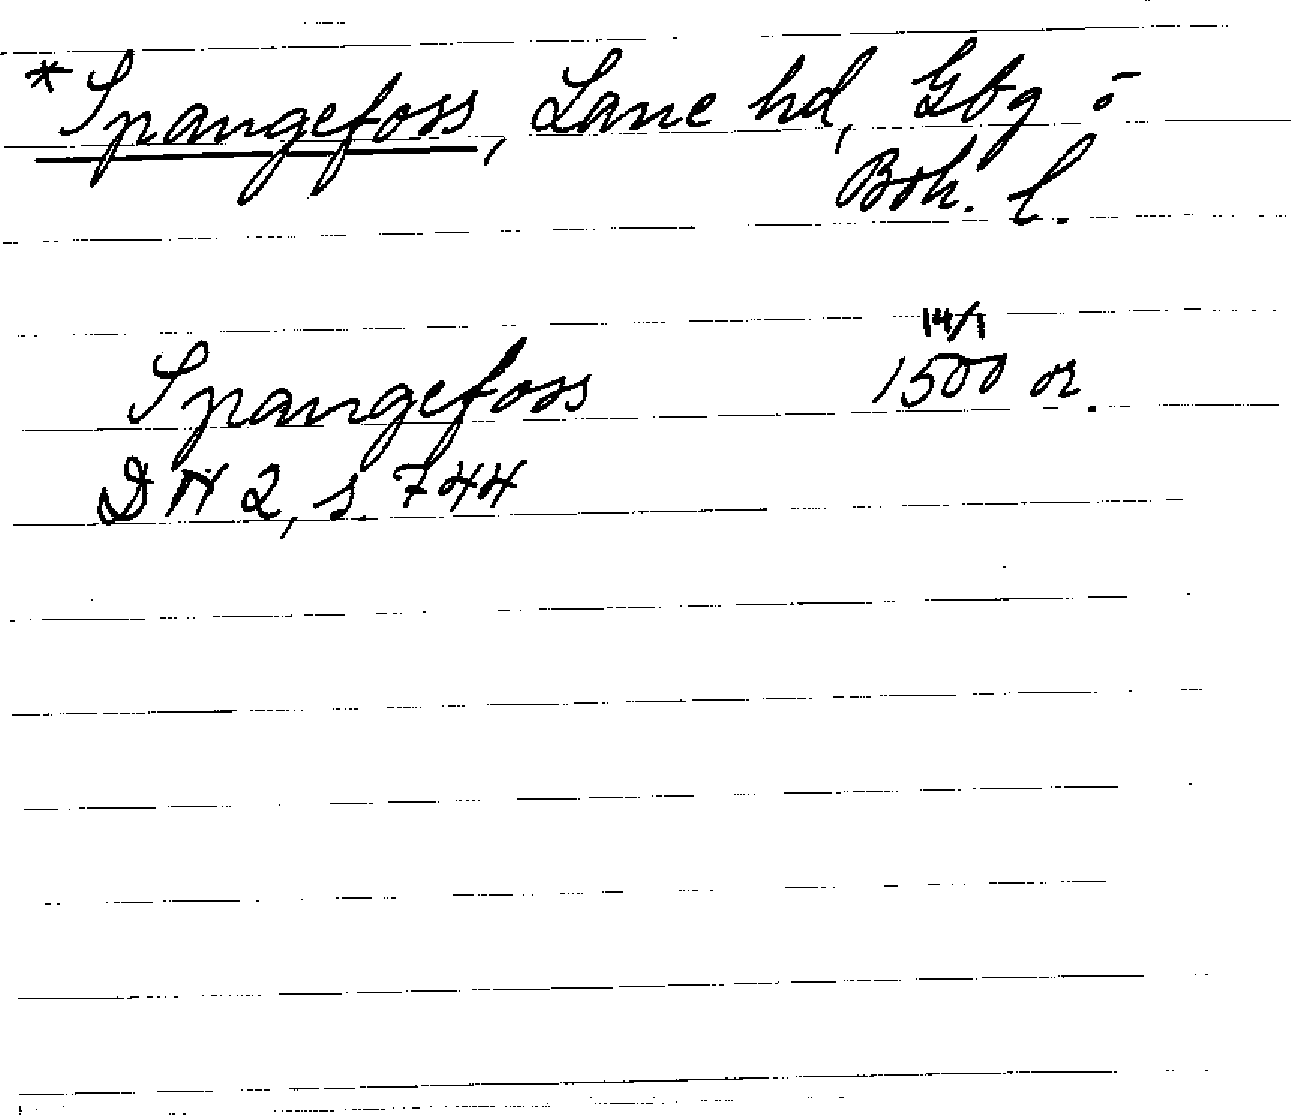 *Spangefoss, Lane hd, Gbg o
Boh. l.
14/1
Spangefoss 1500 or.
DN 2, s. 744